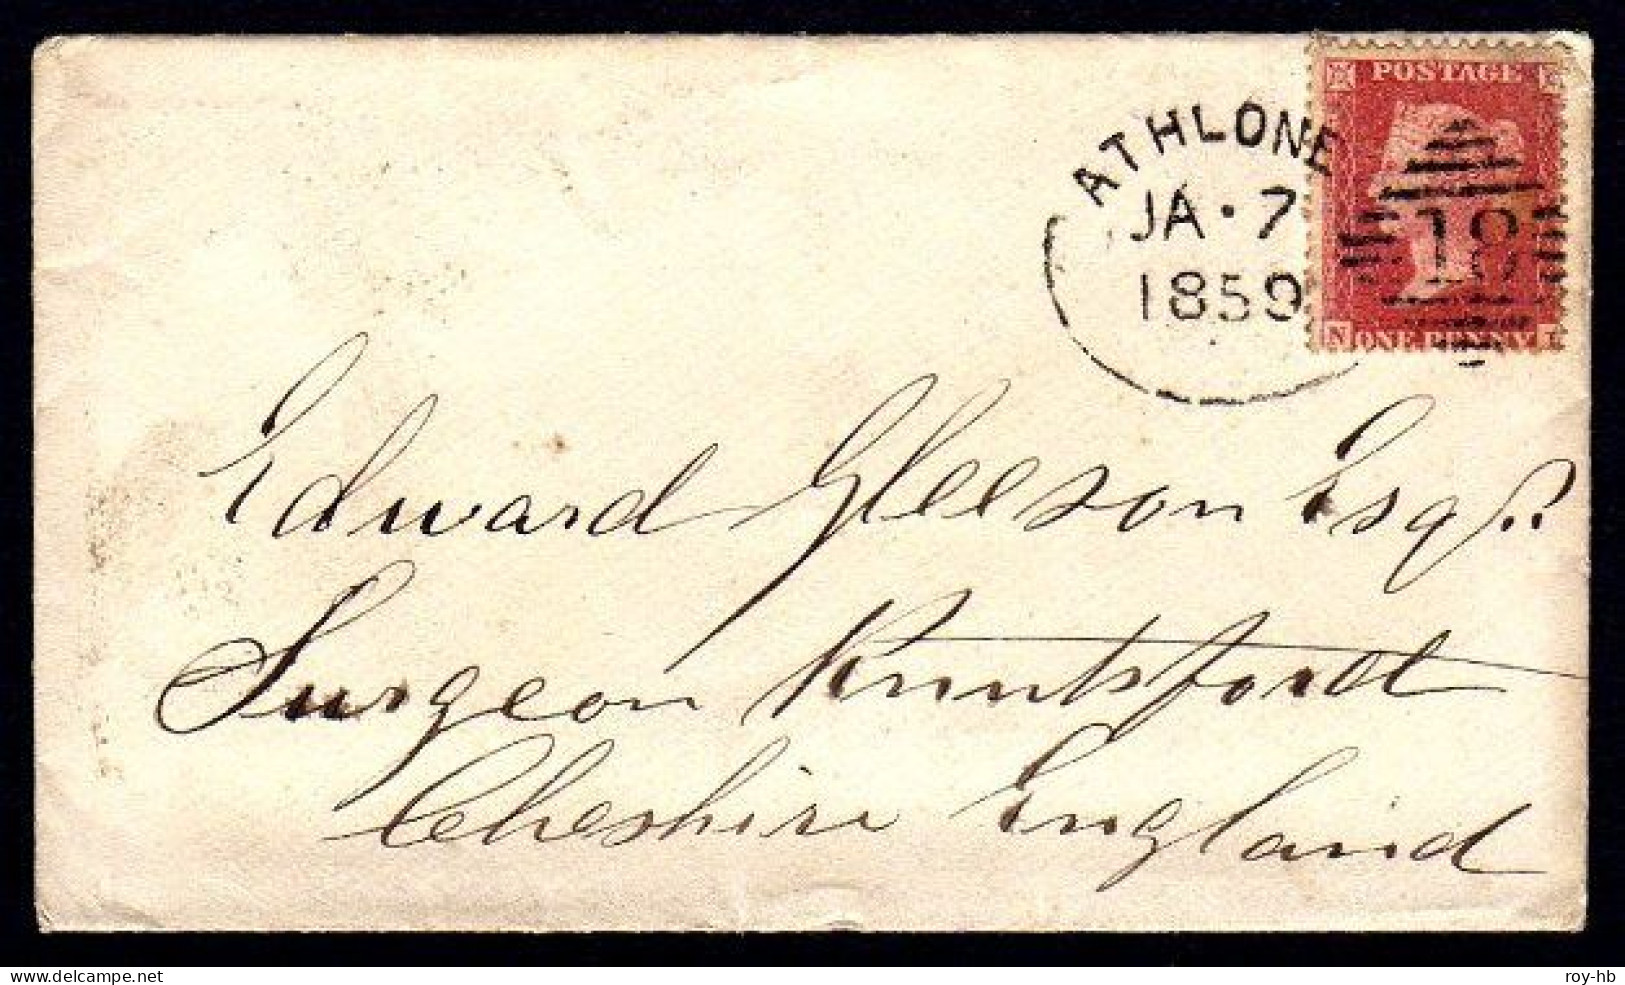 POSTAGE
ATHLONE
JA · 7
1859
18
N ONE PENNY I
Edward Gleeson Esqr.
Surgeon Knutsford
Cheshire England
roy-hb